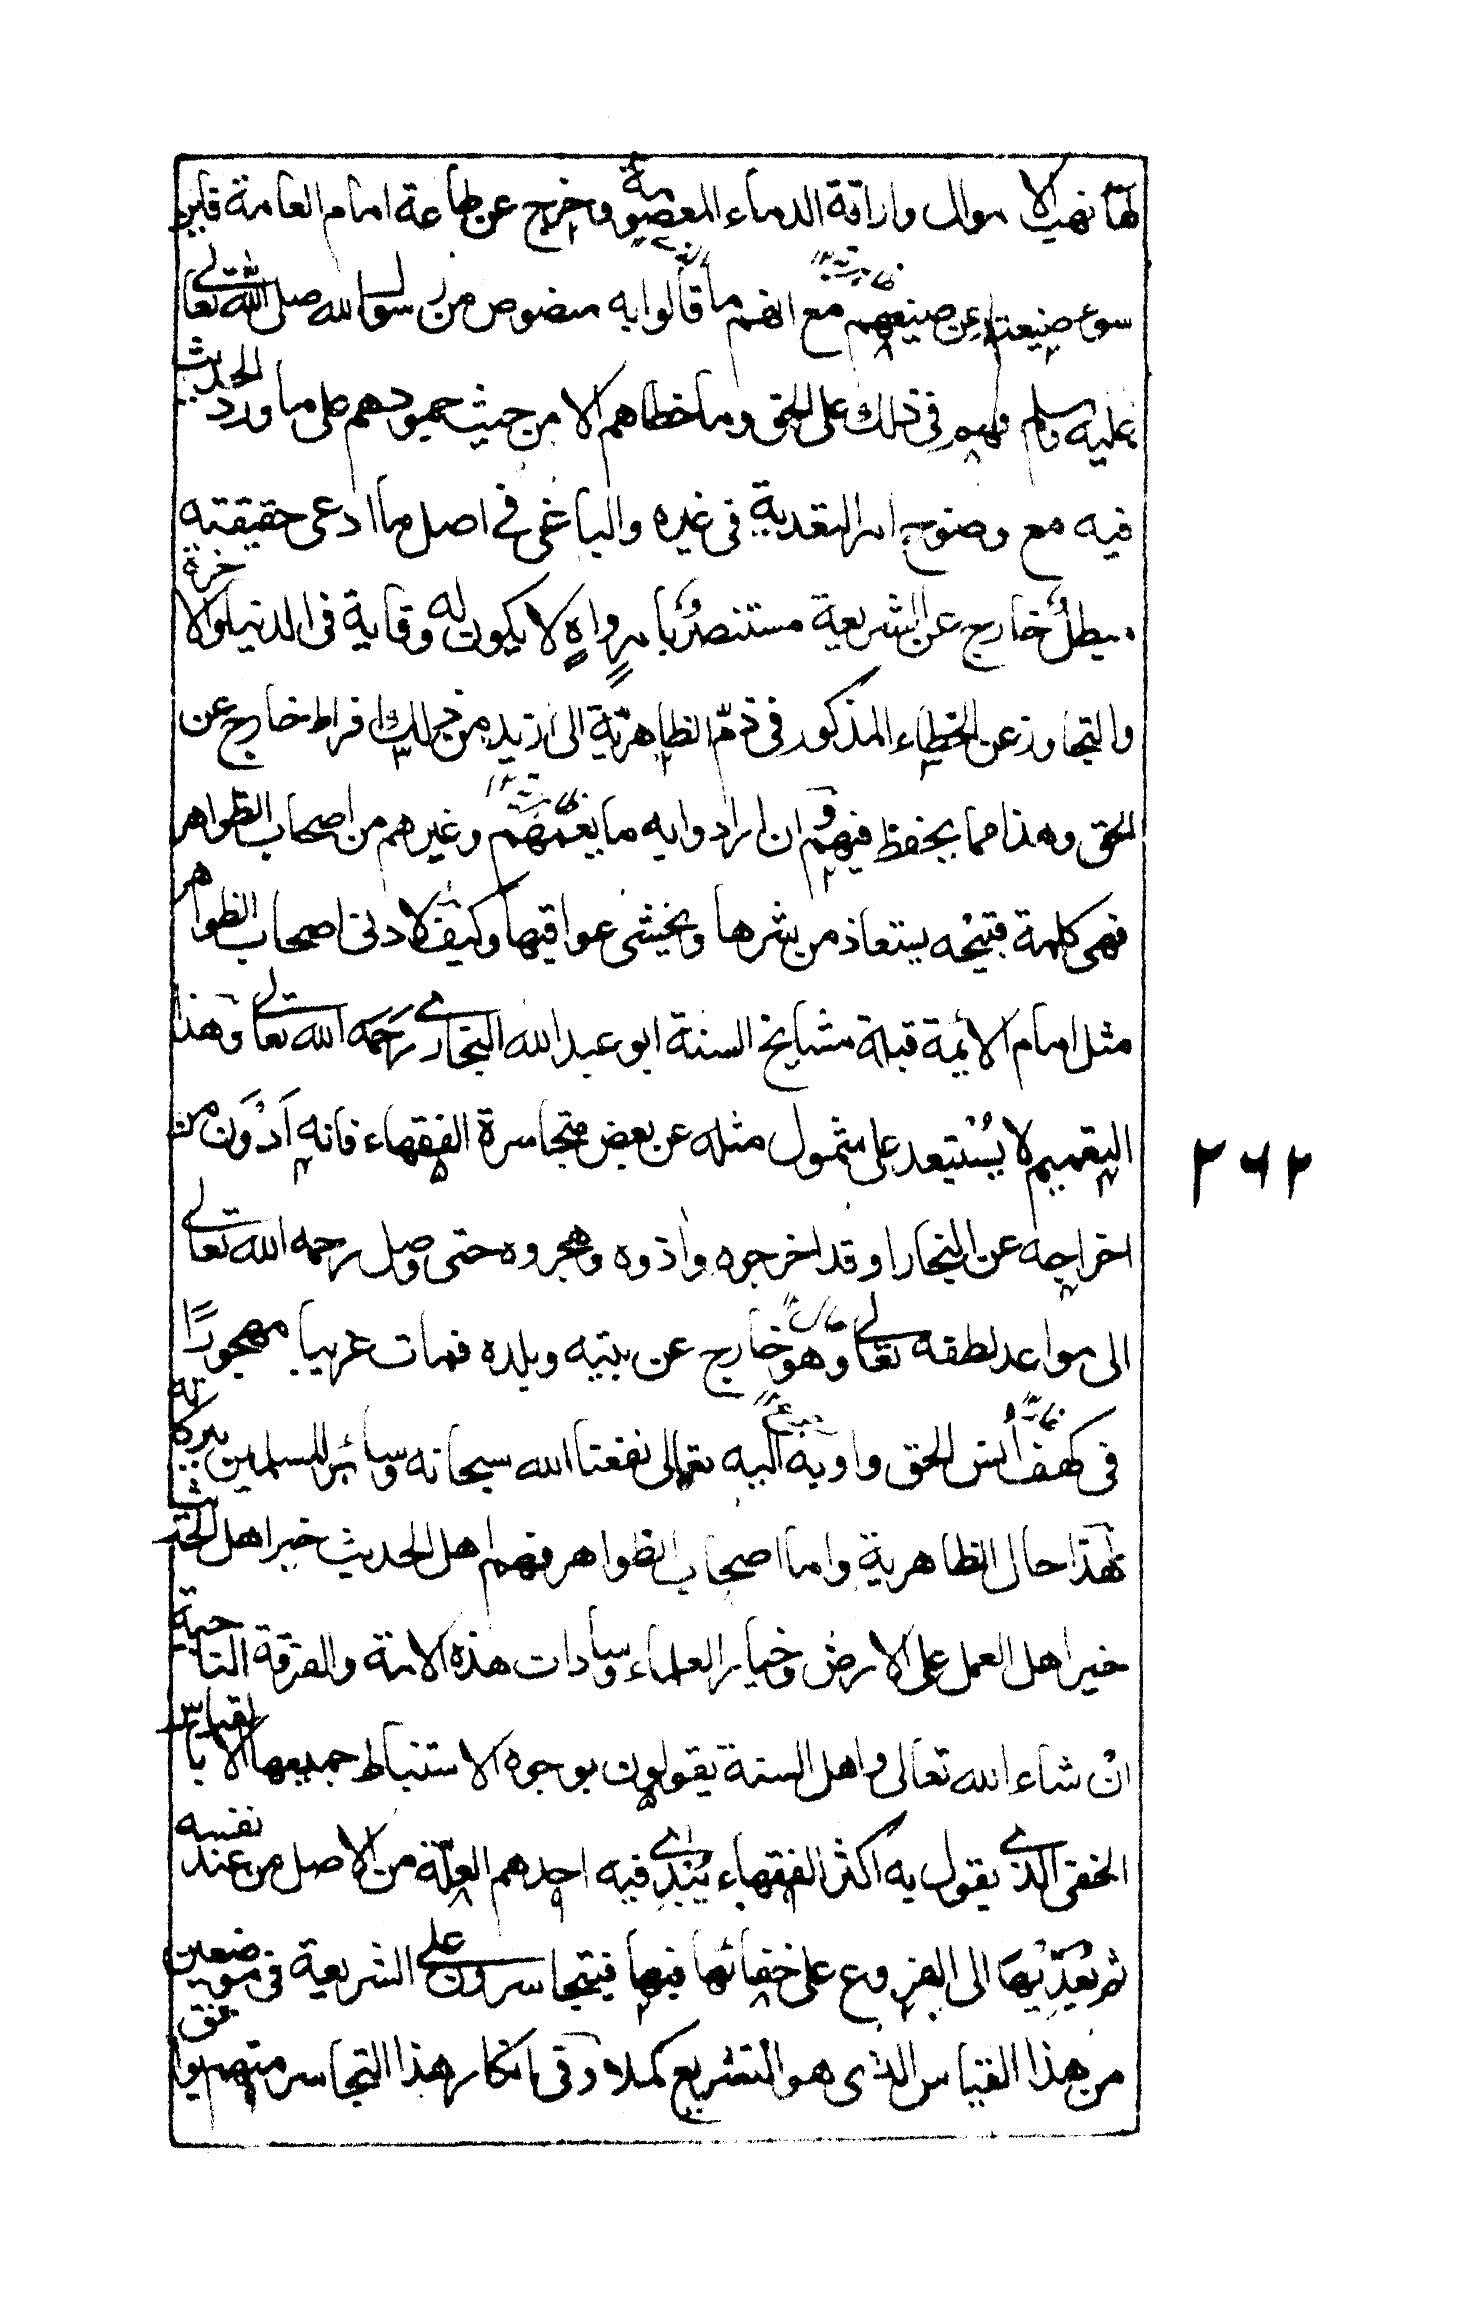 لها نهب الاموال واراقة الدماء المعصومة وخرج عن طاعة امام العامة فاين
سوء صنيعة عن صنيعهم مع انهم ما قالوا به منصوص من رسول الله صلى الله تعالى
عليه وسلم فهم في ذلك على الحق وما خطاهم الا من حيث جمودهم على ما ورد الحديث
فيه مع وضوح امر التعدية في غيره والباغى في اصل ما ادعى حقيقته
مبطل خارج عن الشريعة مستنصر بامر واه لا يكون له وقاية في الدنيا والاخرة
والتجاوز عن الخطاء المذكور في ذم الظاهرية الى ازيد من ذلك افراط خارج عن
الحق وهذا مما يحفظ فيهم وان ارادوا به ما يعمهم وغيرهم من اصحاب الظواهر
فهى كلمة قبيحه يستعاذ من شرها ويخشى عواقبها وكيف لا دنى اصحاب الظواهر
مثل امام الائمة قبلة مشايخ السنة ابو عبد الله البخارى رحمه الله تعالى وهذا
التعميم لا يستبعد على شمول مثله عن بعض متجاسرة الفقهاء فانه ادون من
اخراجه عن البخارا وقد اخرجوه واذوه وهجروه حتى وصل رحمه الله تعالى
الى مواعد لطفه تعالى وهو خارج عن بيته وبلده فمات غريبا مهجورًا
في كهف أنس الحق واويه اليه تعالى نفعنا الله سبحانه وسائر المسلمين ببركاته
هذا حال الظاهرية واما اصحاب الظواهر فهم اهل الحديث خير اهل الحديث
خير اهل العمل على الارض وخيار العلماء وسادات هذه الامة والفرقة الناجية
ان شاء الله تعالى واهل السنة يقولون بوجوه الاستنباط جميعها الا بالقياس
الخفى الذى يقول به اكثر الفقهاء يبدى فيه احدهم العلة من الاصل من عند نفسه
ثم يعديها الى الفروع على خفائها فيها فيتجاسرون على الشريعة في موضعين
من هذا القياس الذى هو التشريع كملا وفي انكار هذا التجاسر منهم
٢٦٢